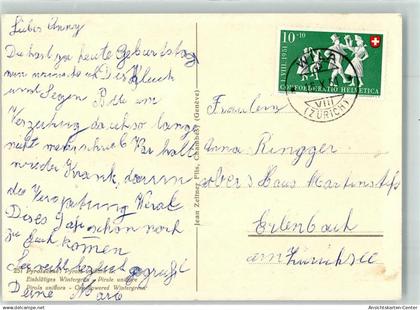 Liebes Anny
Du hast ja heute Geburtstag
nun wünsche ich Dir Glück
und Segen Bitte um
Verzeihung das ich so lange
nicht mehr schrieb War halt
wieder Krank, darum
die Verspätung Werde
Dieses Jahr schon noch
zu Euch kommen
Sei recht herzlich gegrüßt
Deine
Pyrole uniflore
Einblütiges Wintergrün - Pirole uniflore
Pirola uniflora - One-flowered Wintergreen
Jean Zeltner Fils, Chambésy (Genève)
10+10
1. VIII. 1951
CONFOEDERATIO HELVETICA
WALD
VIII
(ZÜRICH)
Fräulein
Anna Ringger
ober's Haus Martinstift
Erlenbach
am Zürichsee
www.ansichtskarten-center.de